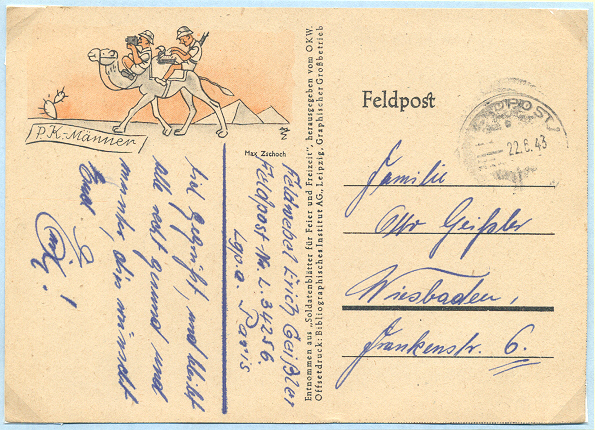 P.K.-Männer
Max Zschoch
Seid gegrüßt, und bleibt
alle recht gesund und
munter, dies wünscht
Euch
Feldwebel Erich Geißler
Feldpost-Nr. L. 34256.
Lgpa. Paris
Entnommen aus „Soldatenblätter für Feier und Freizeit“, herausgegeben vom OKW.
Offsetdruck: Bibliographisches Institut AG., Leipzig, Graphischer Großbetrieb
Feldpost
FELDPOST
22.6.43
Familie
Otto Geißler
Wiesbaden,
Frankenstr. 6.